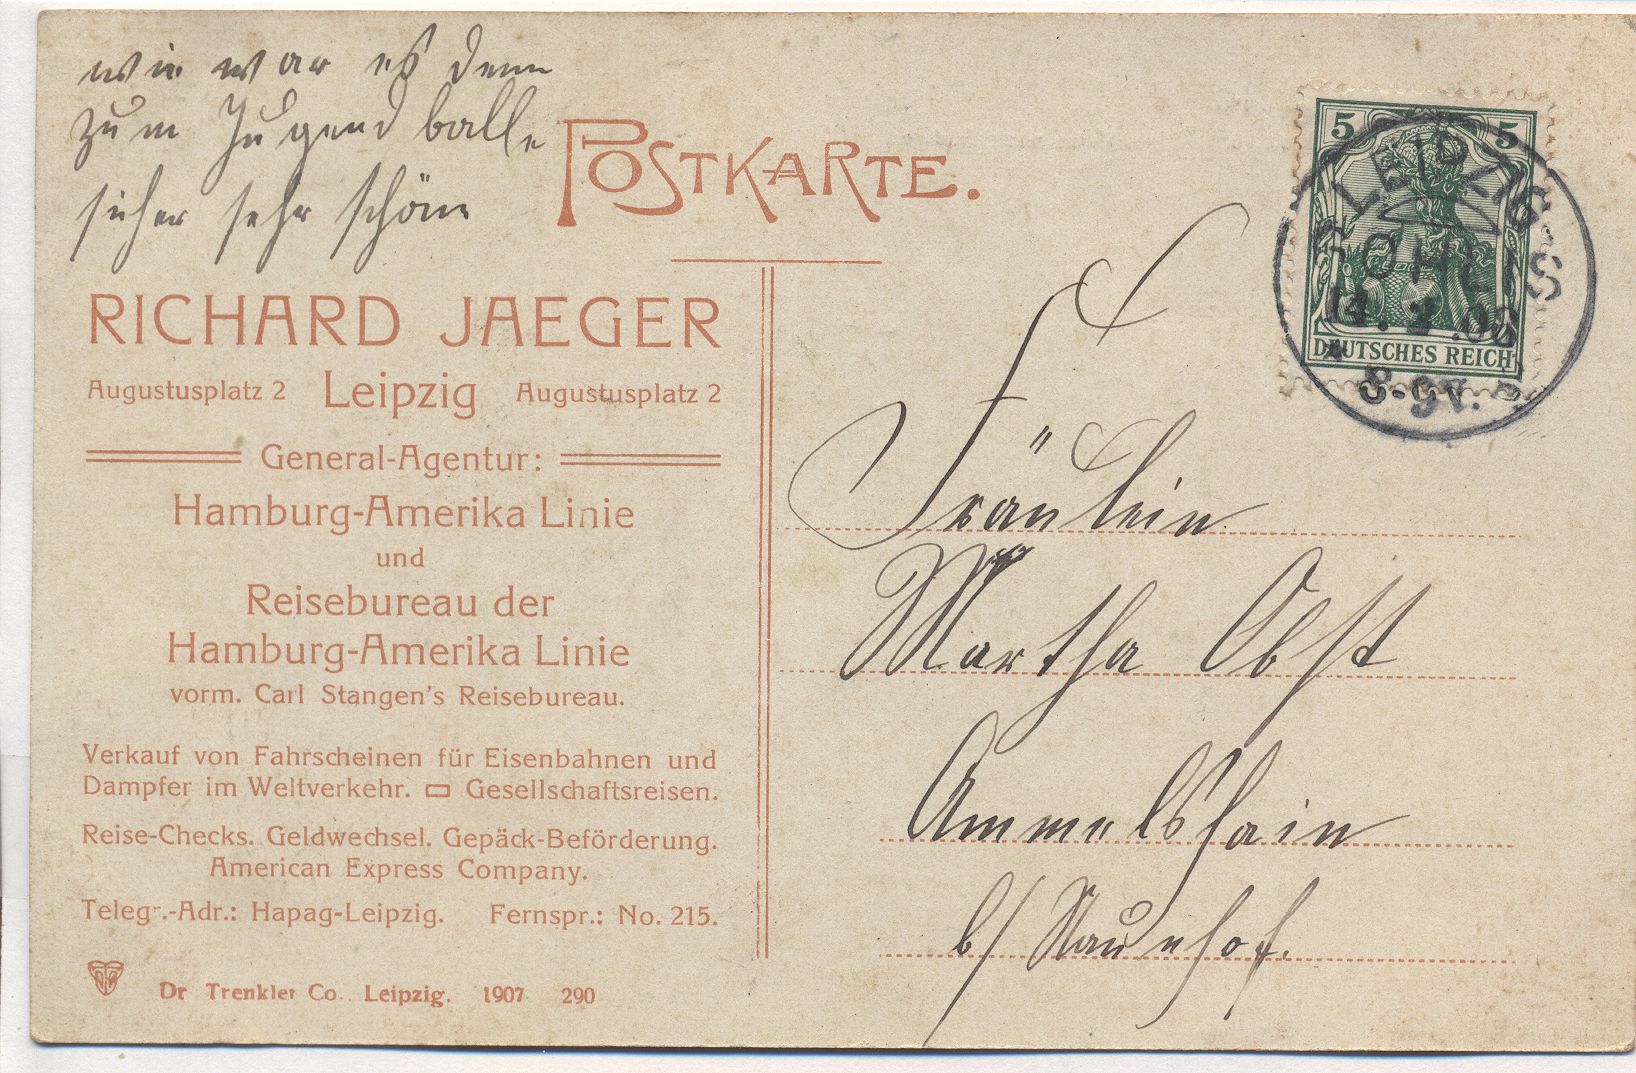 wie war es denn
zum Jugendballe
sicher sehr schön
POSTKARTE.
RICHARD JAEGER
Augustusplatz 2 Leipzig Augustusplatz 2
General-Agentur:
Hamburg-Amerika Linie
und
Reisebureau der
Hamburg-Amerika Linie
vorm. Carl Stangen's Reisebureau.
Verkauf von Fahrscheinen für Eisenbahnen und
Dampfer im Weltverkehr. Gesellschaftsreisen.
Reise-Checks. Geldwechsel. Gepäck-Beförderung.
American Express Company.
Telegr.-Adr.: Hapag-Leipzig. Fernspr.: No. 215.
Dr Trenkler Co. Leipzig. 1907 290
5 5
DEUTSCHES REICH
LEIPZIG
GOHLIS
8-9V.
Fräulein
Martha Obst
Ammelshain
b/ Naunhof.